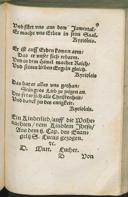 Vnd führ vns aus dem Jamertal/
Er macht vns Erben in seim Saal.
Kyrioleis.
Er ist auff Erden komen arm/
Das er vnser sich erbarm.
Vnd in dem himel machet Reich/
Vnd seinen lieben Engeln gleich.
Kyrioleis
Das hat er alles vns gethan/
Sein gros Lieb zu zeigen an.
Des frew sich alle Christenheit/
Vnd danck jm des in ewigkeit.
Kyrioleis.
Ein Kinderlied/ auff die Weihe
nachten/ vom Kindlein Jhesu/
Aus dem ij. Cap. des Euan
gelij S. Lucas gezogen.
ꝛc.
D. Mart. Luther.
D Von